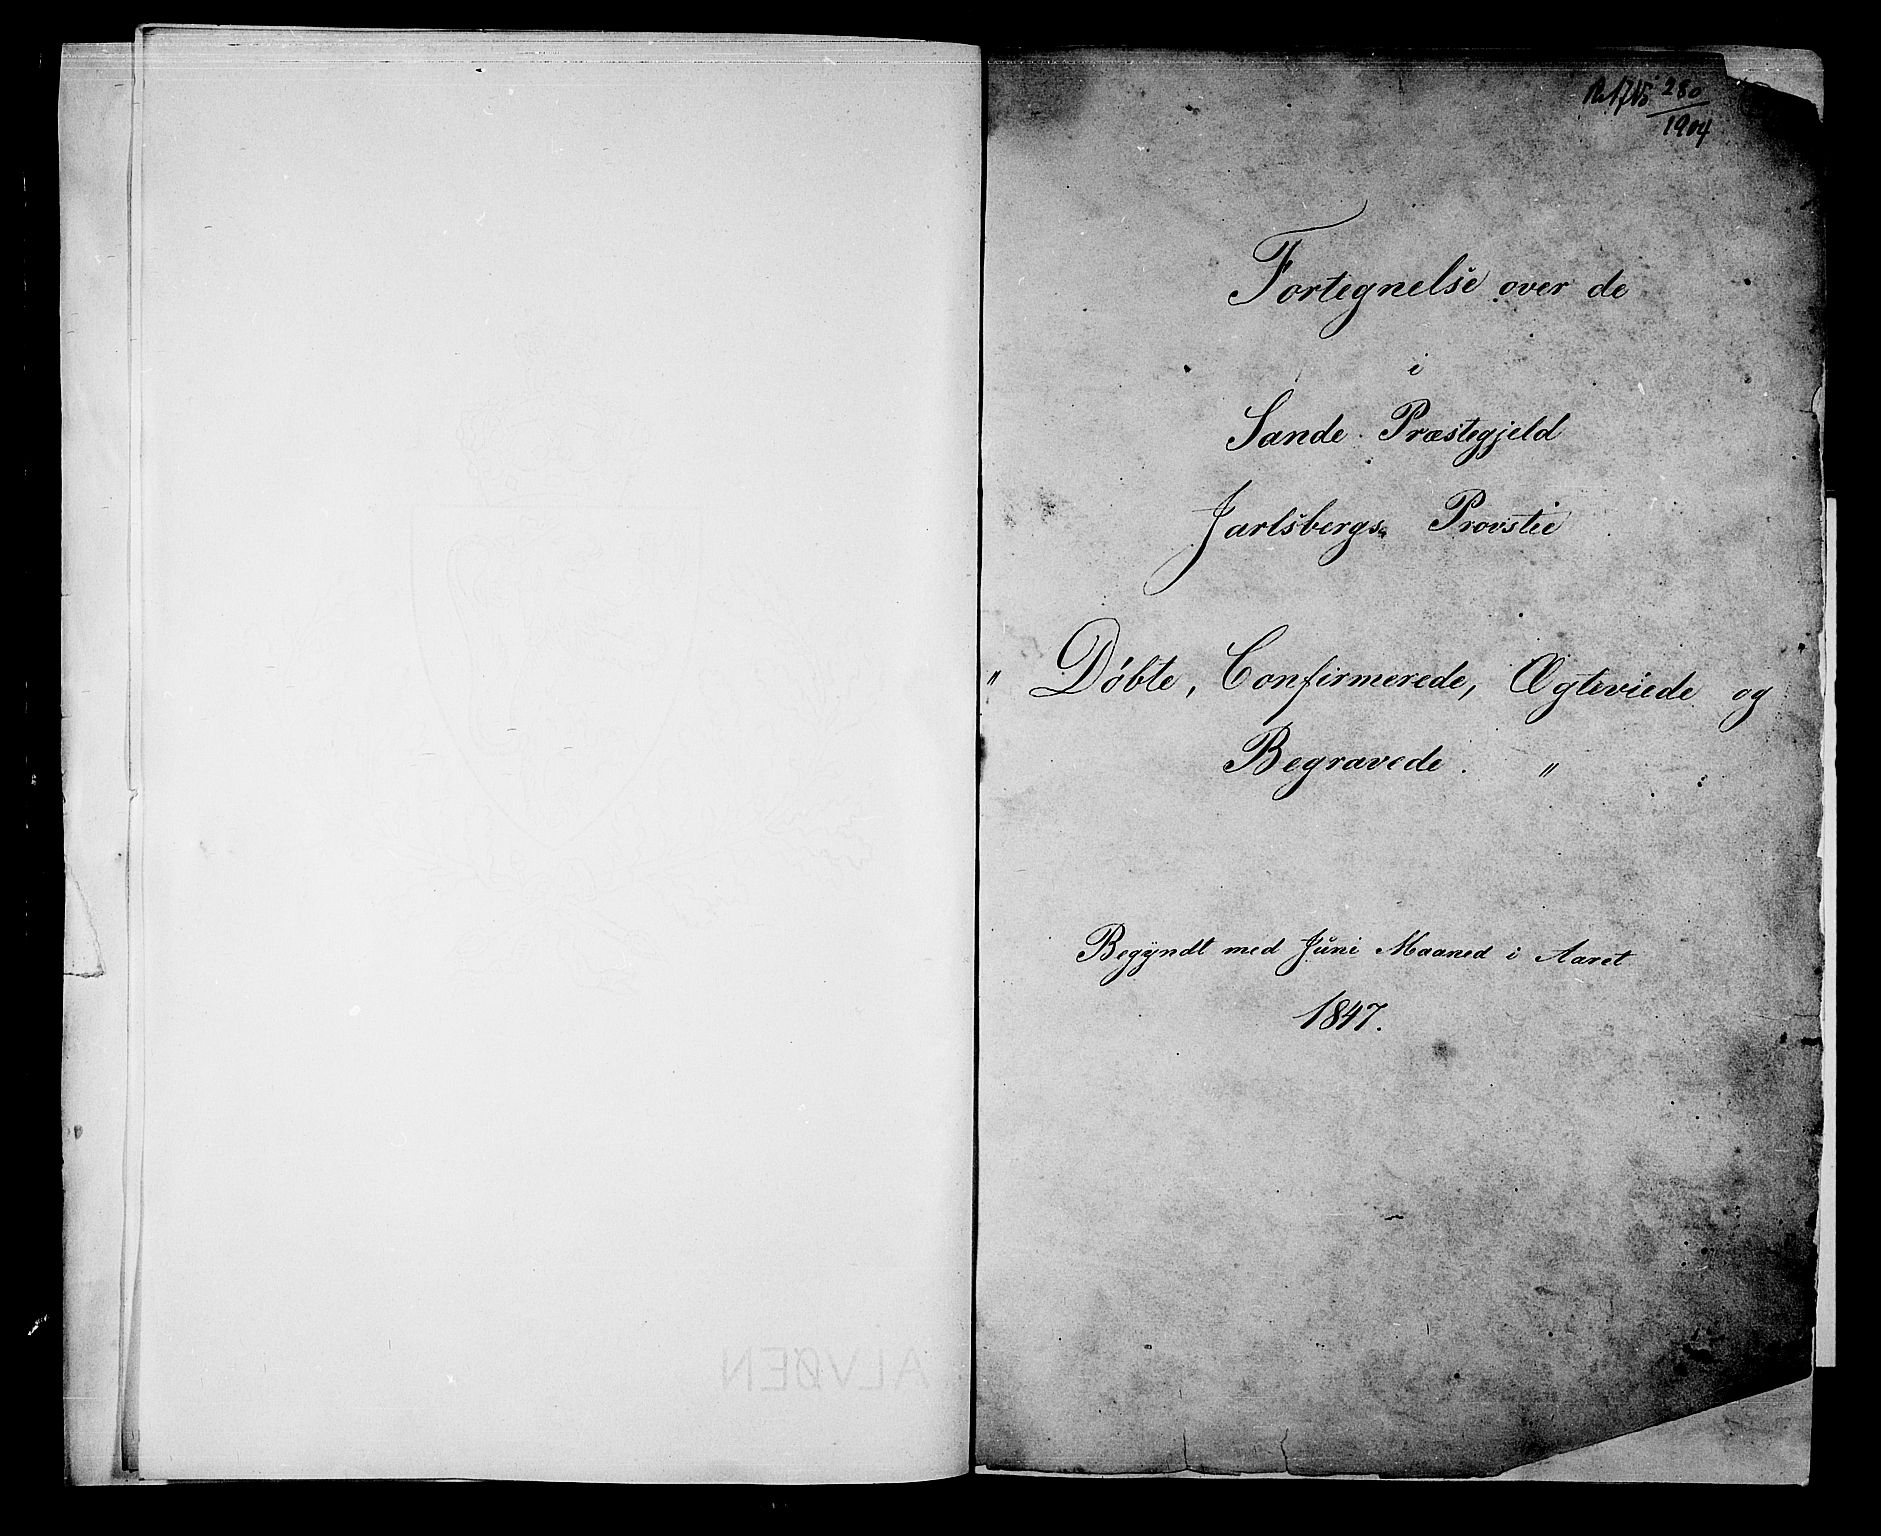 280
1904
Fortegnelse over de
i
Sande Præstegjeld
Jarlsbergs Provstie
" Døbte, Confirmerede, Ægteviede og
Begravede. "
Begyndt med Juni Maaned i Aaret
1847.
ALVØEN